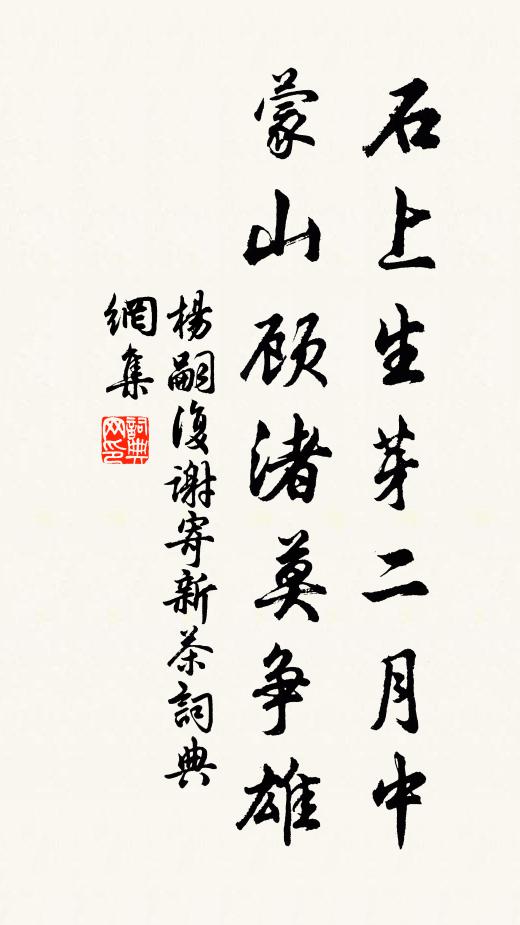 石上生芽二月中
蒙山顾渚莫争雄
楊嗣復谢寄新茶詞典
網集
詞典
网印